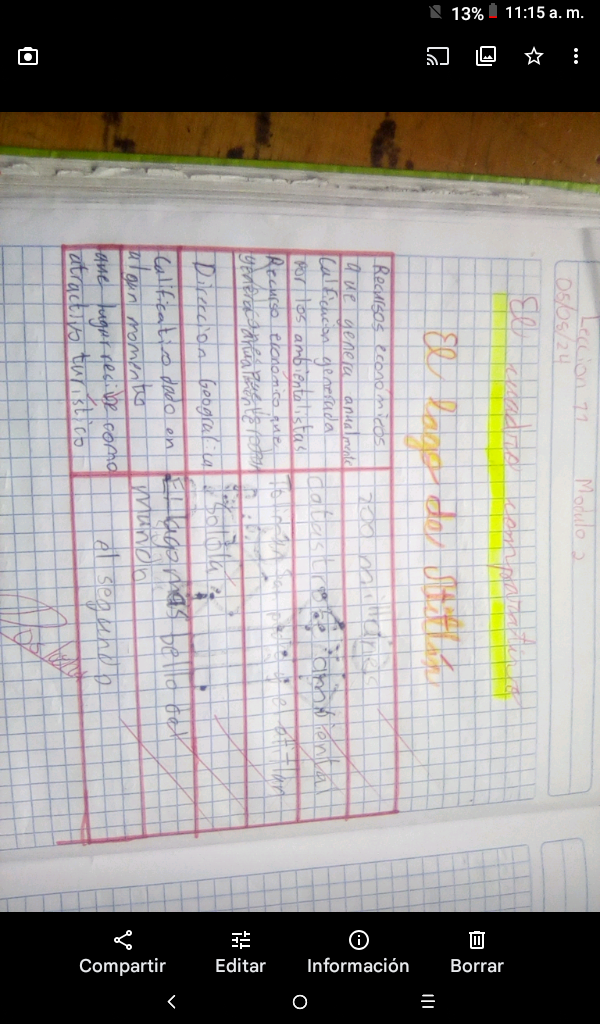 13% 11:15 a. m.
Leccion 71 Modulo 2
05/05/24
El cuadro comparativo
El lago de Atitlán
Recursos económicos
que genera anualmente
200 millones
Calificacion generada
por los ambientalistas
catastrofe ambiental
Recurso económico que
Dirección Geografica
Sololá
Calificativo dado en
algun momento
El lago mas bello del
mundo
que lugar recibe como
atractivo turístico
el segundo
Compartir
Editar
Información
Borrar